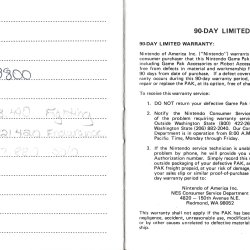 9800
90-DAY LIMITED
90-DAY LIMITED WARRANTY:
Nintendo of America Inc. ("Nintendo") warrants
consumer purchaser that this Nintendo Game Pak
including Game Pak Accessories or Robot Access
free from defects in material and workmanship f
90 days from date of purchase. If a defect covere
ranty occurs during this 90-day warranty period,
repair or replace the PAK, at its option, free of char
To receive this warranty service:
1. DO NOT return your defective Game Pak
2. Notify the Nintendo Consumer Service
of the problem requiring warranty service
Outside Washington State (800) 422-26
Washington State (206) 882-2040. Our Con
Department is in operation from 8:00 A.M.
Pacific Time, Monday through Friday.
3. If the Nintendo service technician is unable
problem by phone, he will provide you
Authorization number. Simply record this n
outside packaging of your defective PAK, a
PAK freight prepaid, at your risk of damage,
your sales slip or similar proof-of-purchase
day warranty period to:
Nintendo of America Inc.
NES Consumer Service Department
4820 – 150th Avenue N.E.
Redmond, WA 98052
This warranty shall not apply if the PAK has been
negligence, accident, unreasonable use, modificatio
or by other causes unrelated to defective materials
ship.